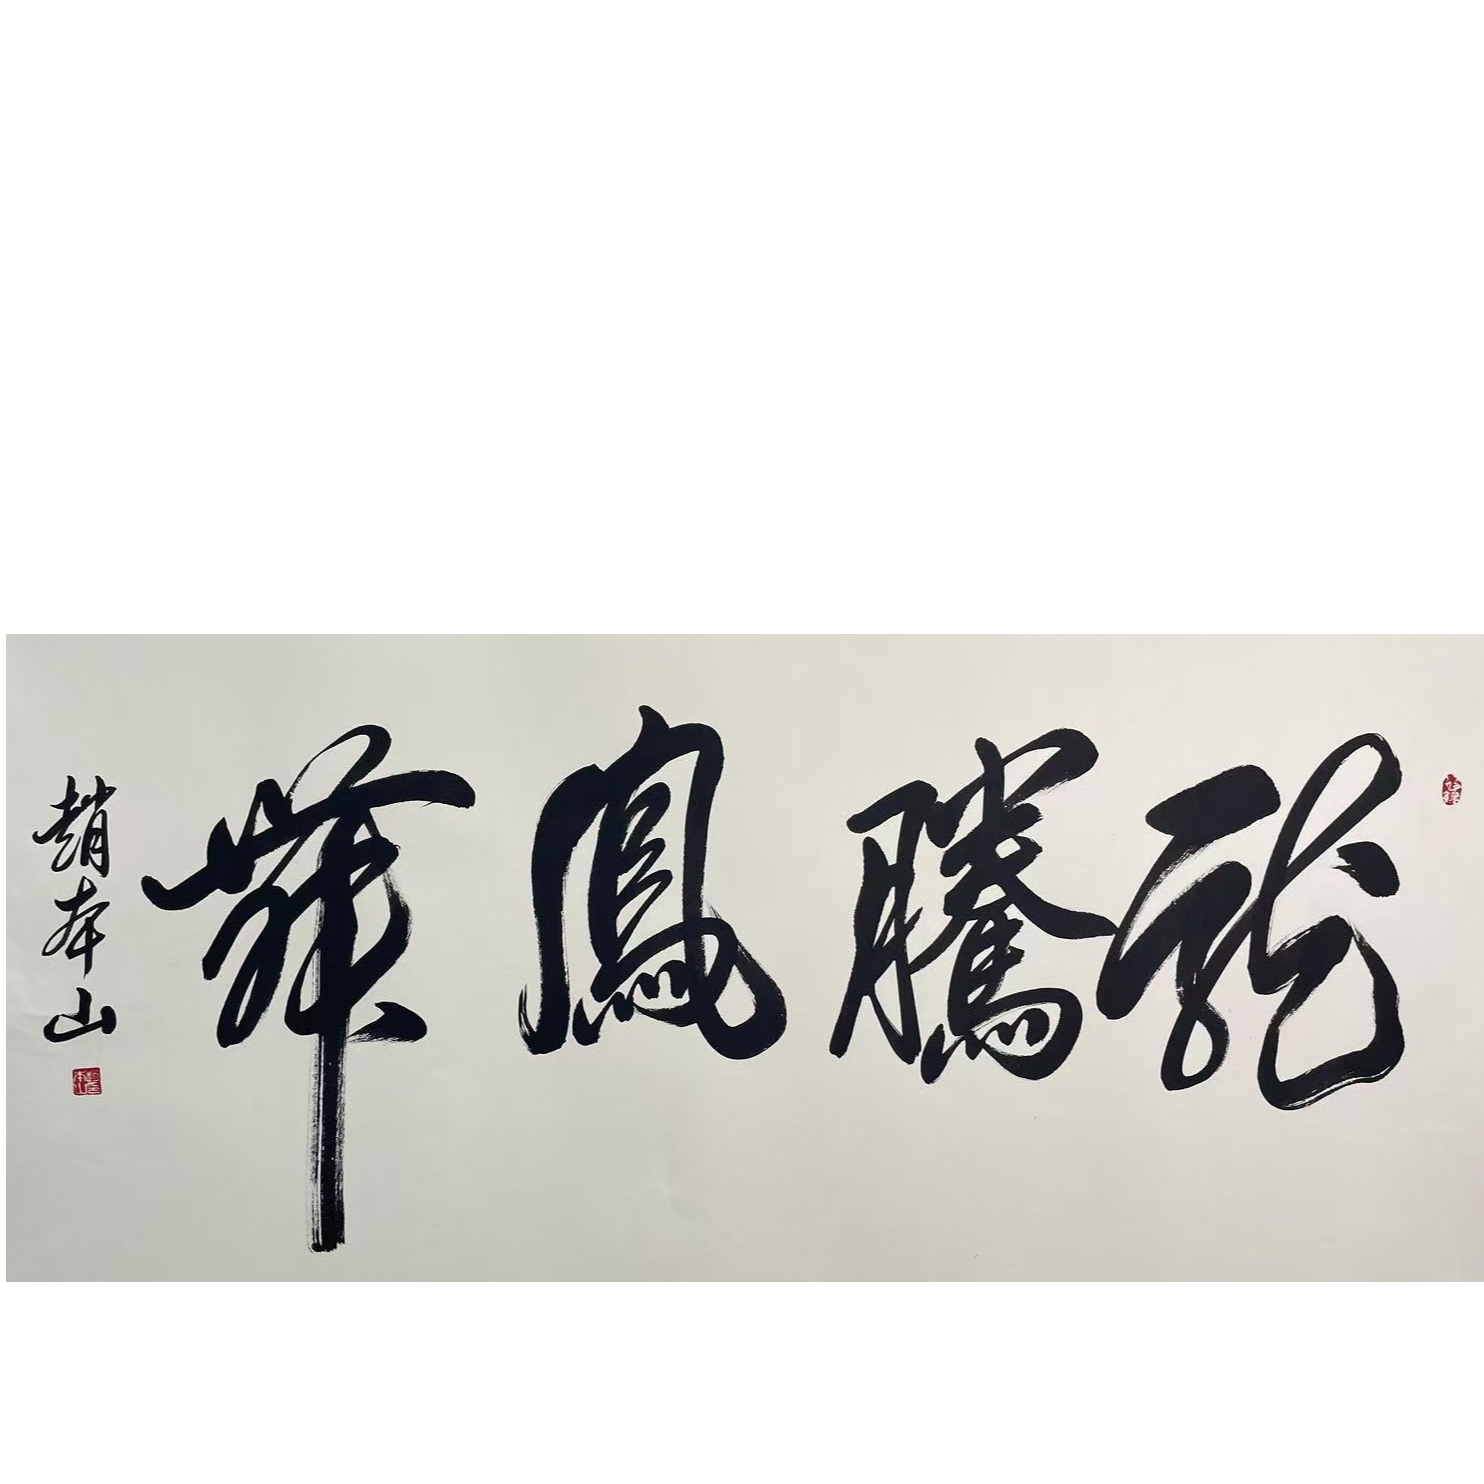 龍騰鳳舞
趙本山